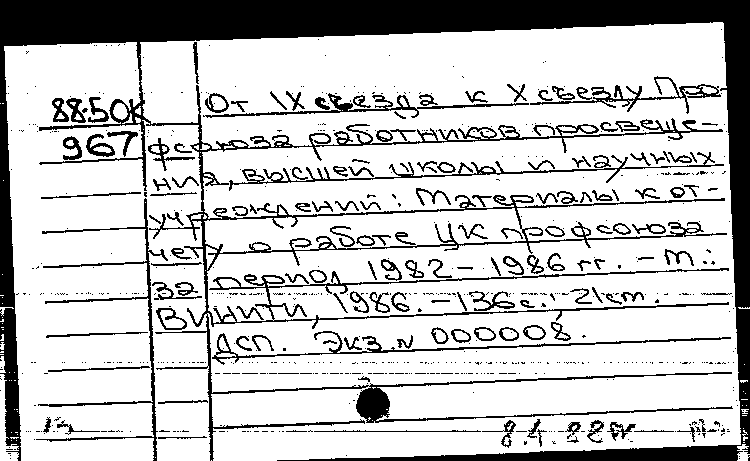 88-50К От IX съезда к X съезду Про-
967 фсоюза работников просвеще-
ния, высшей школы и научных
учреждений: Материалы к от-
чету о работе ЦК профсоюза
за период 1982 – 1986 гг. – М.:
ВИНИТИ, 1986. – 136 с.; 21 см.
ДСП. Экз. N 000008.
8.4.88